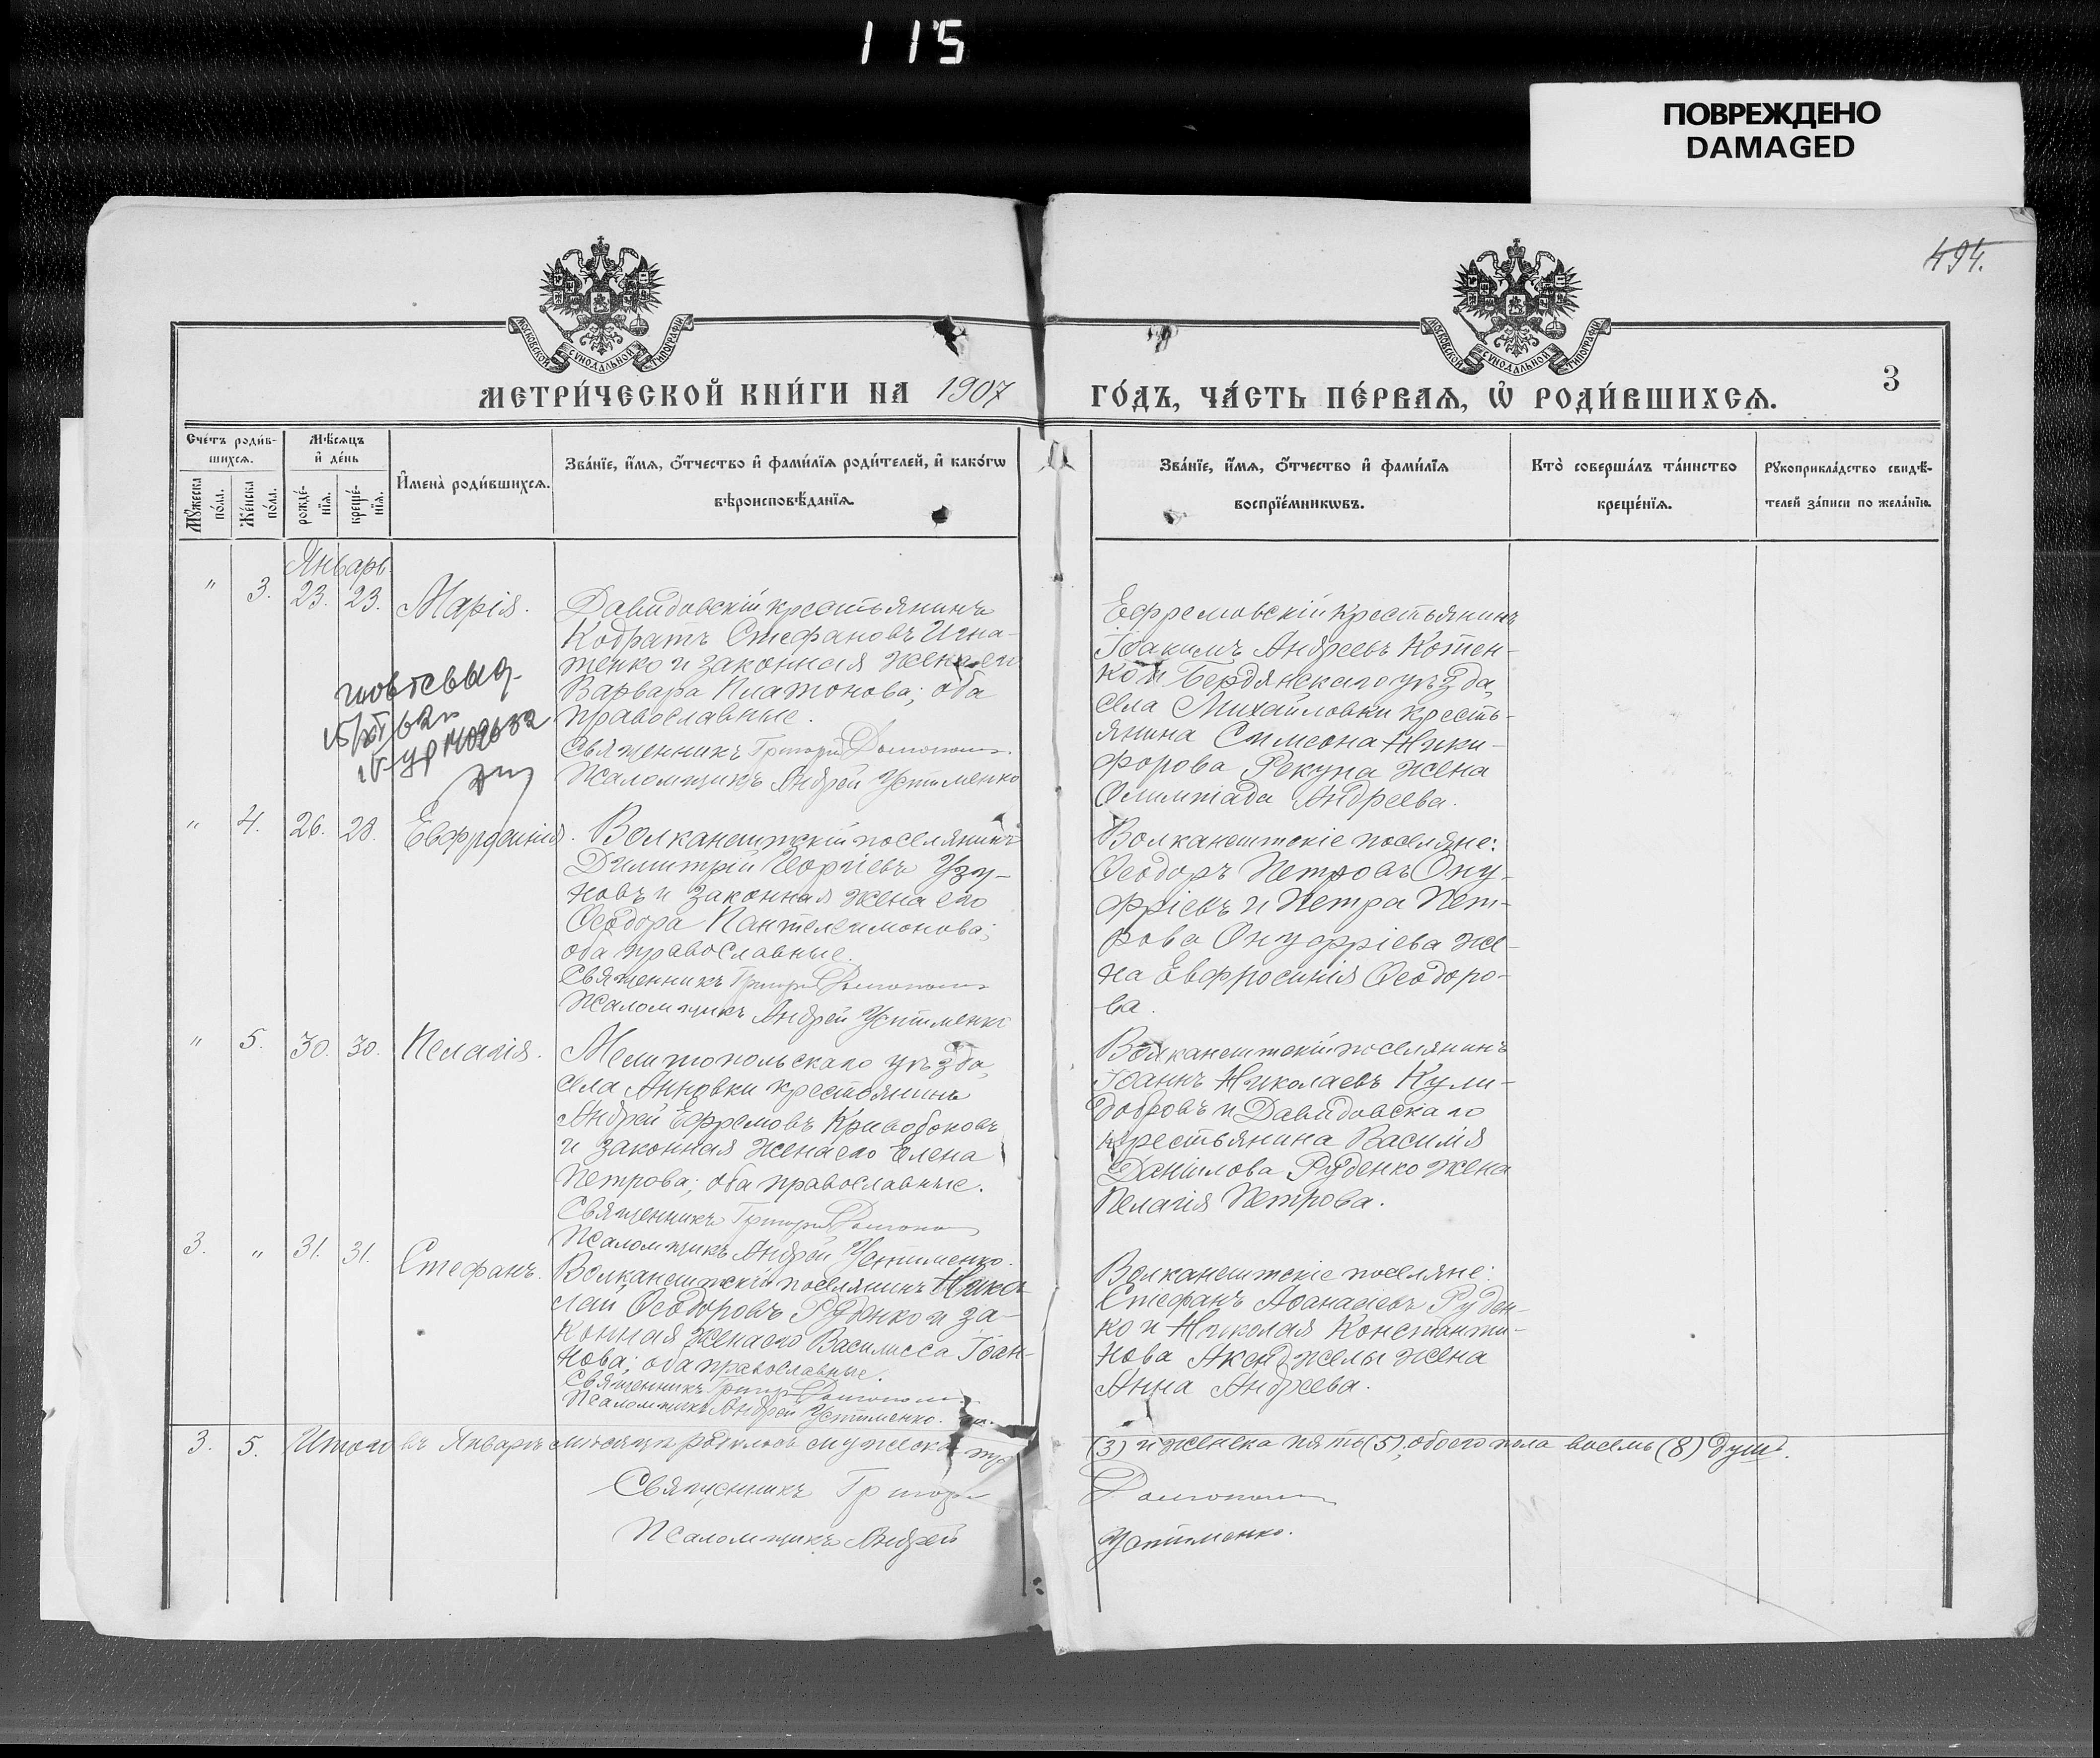 115
ПОВРЕЖДЕНО
DAMAGED
494.
МОСКОВСКОЙ СУНОДАЛЬНОЙ ТИПОГРАФІИ
МОСКОВСКОЙ СУНОДАЛЬНОЙ ТИПОГРАФІИ
МЕТРИ́ЧЕСКОЙ КНИ́ГИ НА 1907
ГО́ДЪ, ЧА́СТЬ ПЕ́РВАѦ, Ѡ҆ РОДИ́ВШИХСѦ.
3
Сче́тъ роди́в-
шихсѧ.
Мꙋ́жеска
по́ла.
Же́нска
по́ла.
Мѣ́сѧцъ
и҆ де́нь
рожде́-
нїѧ.
креще́-
нїѧ.
И҆мена̀ роди́вшихсѧ.
Зва́нїе, и҆́мѧ, ѻ҆́тчество и҆ фами́лїѧ роди́телей, и҆ како́гѡ
вѣроисповѣ́данїѧ.
Зва́нїе, и҆́мѧ, ѻ҆́тчество и҆ фами́лїѧ
воспрїе́мникѡвъ.
Кто̀ соверша́лъ та́инство
креще́нїѧ.
Рꙋкоприкла́дство свидѣ́-
телей за́писи по жела́нїю.
Январь
" 3. 23. 23. Марія.
Давидовскій крестьянинъ
Кодратъ Стефановъ Игна-
тенко и законная жена его
Варвара Платонова; оба
православные.
Священникъ Григорій
Псаломщикъ Андрей Устименко
Ефремовскій крестьянинъ
Іоакимъ Андреевъ Котен-
ко и Бердянскаго уѣзда,
села Михайловки кресть-
янина Симеона Ники-
форова Рекуна жена
Олимпіада Андреева.
" 4. 26. 28. Евфросинія.
Волканештскій поселянинъ
Димитрій Георгіевъ Узу-
новъ и законная жена его
Ѳеодора Пантелеимонова;
оба православные.
Священникъ Григорій
Псаломщикъ Андрей Устименко
Волканештскіе поселяне:
Ѳеодоръ Петровъ Ону-
фріевъ и Петра Пет-
рова Онуфріева же-
на Евфросинія Ѳеодоро-
ва.
" 5. 30. 30. Пелагія.
Мелитопольскаго уѣзда,
села Анновки крестьянинъ
Андрей Ефремовъ Кривобоковъ
и законная жена его Елена
Петрова; оба православные.
Священникъ Григорій
Псаломщикъ Андрей Устименко.
Волканештскій поселянинъ
Іоаннъ Николаевъ Кули-
добровъ и Давидовскаго
крестьянина Василія
Даніилова Руденко жена
Пелагія Петрова.
3. " 31. 31. Стефанъ.
Волканештскій поселянинъ Нико-
лай Ѳеодоровъ Руденко и за-
конная жена его Василисса Іоан-
нова; оба православные.
Священникъ Григорій
Псаломщикъ Андрей Устименко.
Волканештскіе поселяне:
Стефанъ Аѳанасіевъ Руден-
ко и Николая Константи-
нова Акенджелы жена
Анна Андреева.
3. 5. Итого въ Январѣ мѣсяцѣ родилось мужеска три
(3) и женска пять (5), обоего пола восемь (8) душъ.
Священникъ Григорій
Псаломщикъ Андрей
Устименко.